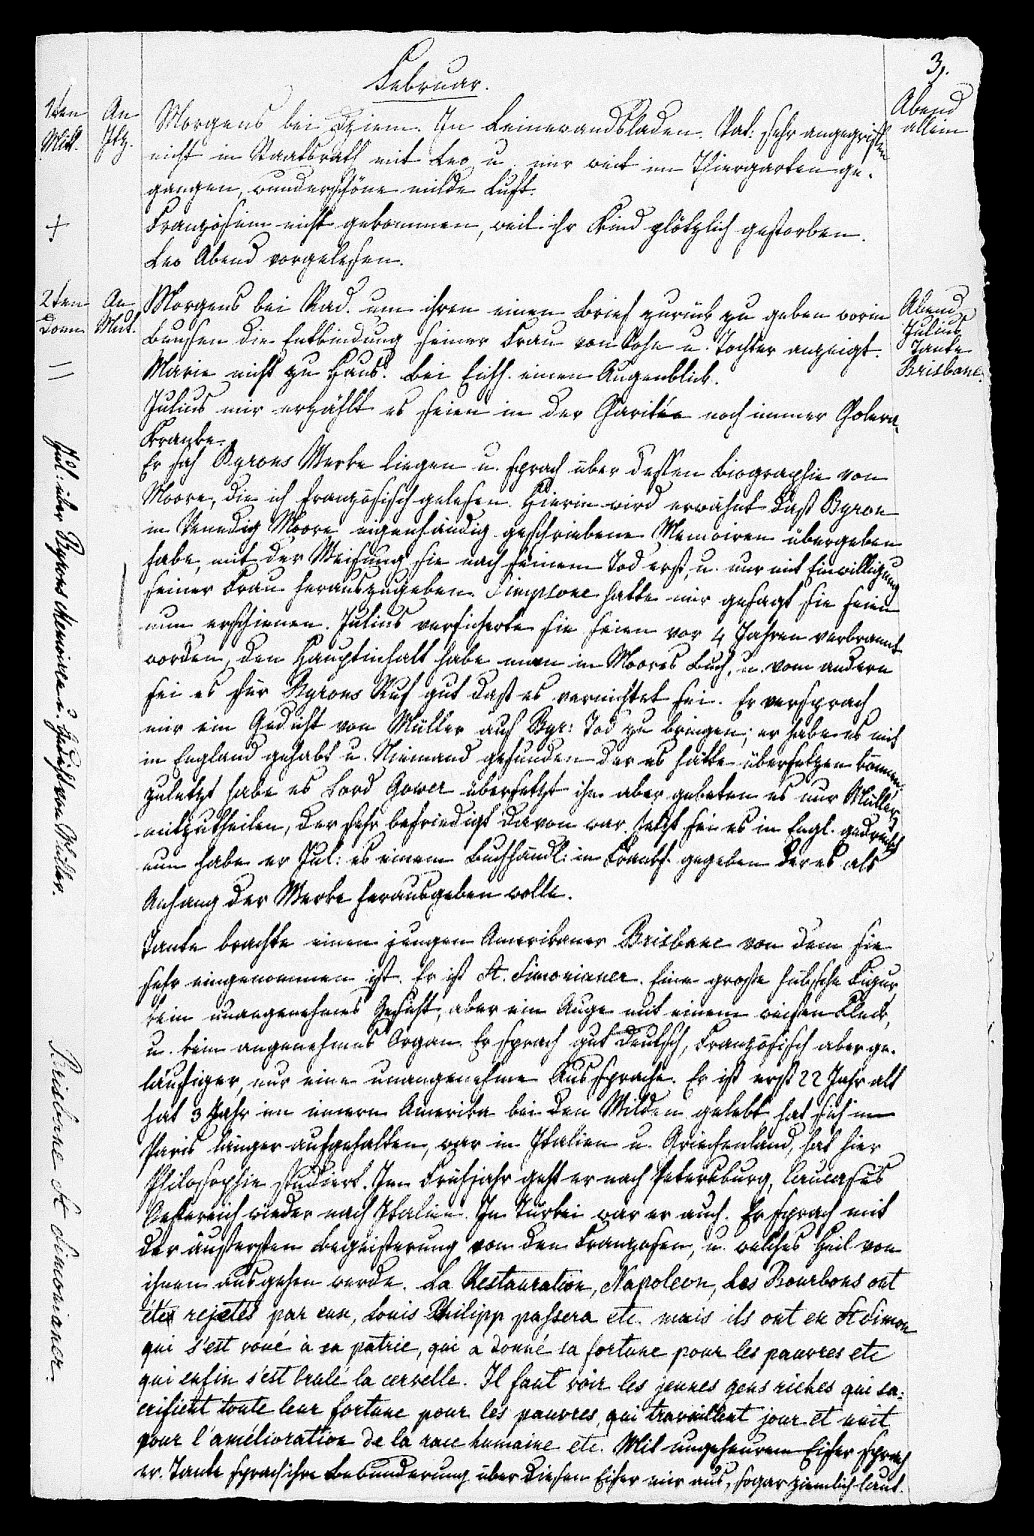 Februar.
3.
1ten
Mitt.
An
Itz.
Morgens bei Dziem. In Leinewandsladen. Pat: sehr angegriffen
nicht in Staatsrath mit Leo u. mir weit im Thiergarten ge-
gangen, wunderschöne milde Luft.
Französin nicht gekommen, weil ihr Kind plötzlich gestorben.
Leo Abend vorgelesen.
Abend
allein
2ten
Donn.
An
Mut.
Morgens bei Rad. um ihren einen Brief zurück zu geben worin
Bunsen die Entbindung seiner Frau von Sohn u. Tochter anzeigt.
Marie nicht zu Haus. Bei Luth. einen Augenblick.
Julius mir erzählt es seien in der Charitée noch immer Colera-
Kranke.
Er sah Byrons Werke liegen u. sprach über dessen Biographie von
Moore, die ich französisch gelesen. Hierin wird erwähnt daß Byron
in Venedig Moore eigenhändig geschriebene Memoiren übergeben
habe, mit der Weisung sie nach seinem Tod erst, u. nur mit Einwilligung
seiner Frau herauszugeben. Simpsone hatte mir gesagt sie seien
nun erschienen. Julius versicherte sie seien vor 4 Jahren verbrannt
worden, den Hauptinhalt habe man in Moores Buch, u. vom andern
sei es für Byrons Ruf gut daß es vernichtet sei. Er versprach
mir ein Gedicht von Müller auf Byr: Tod zu bringen; er habe es mit
in England gehabt u. Niemand gefunden der es hätte übersetzen können
zuletzt habe es Lord Gower übersetzt ihn aber gebeten es nur Müller
mitzutheilen, der sehr befriedigt davon war. Jetzt sei es in Engl. gedruckt
nun habe er Jul: es einem Buchhändl: in Frankf. gegeben der es als
Anhang der Werke herausgeben wolle.
Abend
Julius
Tante
Brisbane.
Jul: über Byrons Memoiren u. Gedicht von Müller.
Tante brachte einen jungen Amerikaner Brisbane von dem sie
sehr eingenommen ist. Er ist St. Simonianer. Eine große hübsche Figur
kein unangenehmes Gesicht, aber ein Auge mit einem weißen Fleck,
u. kein angenehmes Organ. Er sprach gut Deutsch, Französisch aber ge-
läufiger, nur eine unangenehme Aussprache. Er ist erst 22 Jahr alt
hat 3 Jahr im innern Amerika bei den Wilden gelebt, hat sich in
Paris länger aufgehalten, war in Italien u. Griechenland, hat hier
Philosophie studiert. Im Frühjahr geht er nach Petersburg, Caucasus
Oesterreich wieder nach Italien. In Türkei war er auch. Er sprach mit
der äußersten Begeisterung von den Franzosen, u. welches Heil von
ihnen ausgehen werde. La Restauration, Napoleon, Les Bourbons ont
étés rejetés par eux, Louis Philipp passera etc. mais ils ont eu St Simon
qui s'est voué à sa patrie, qui a donné sa fortune pour les pauvres etc
qui enfin s'est brulé la cervelle. Il faut voir les jeunes gens riches qui sa-
crifient toute leur fortune pour les pauvres, qui travaillent jour et nuit
pour l'amélioration de la race humaine etc. Mit ungeheurem Eifer sprach
er. Tante sprach ihre Bewunderung über diesen Eifer mir aus, sogar ziemlich laut.
Brisbane St Simonianer.